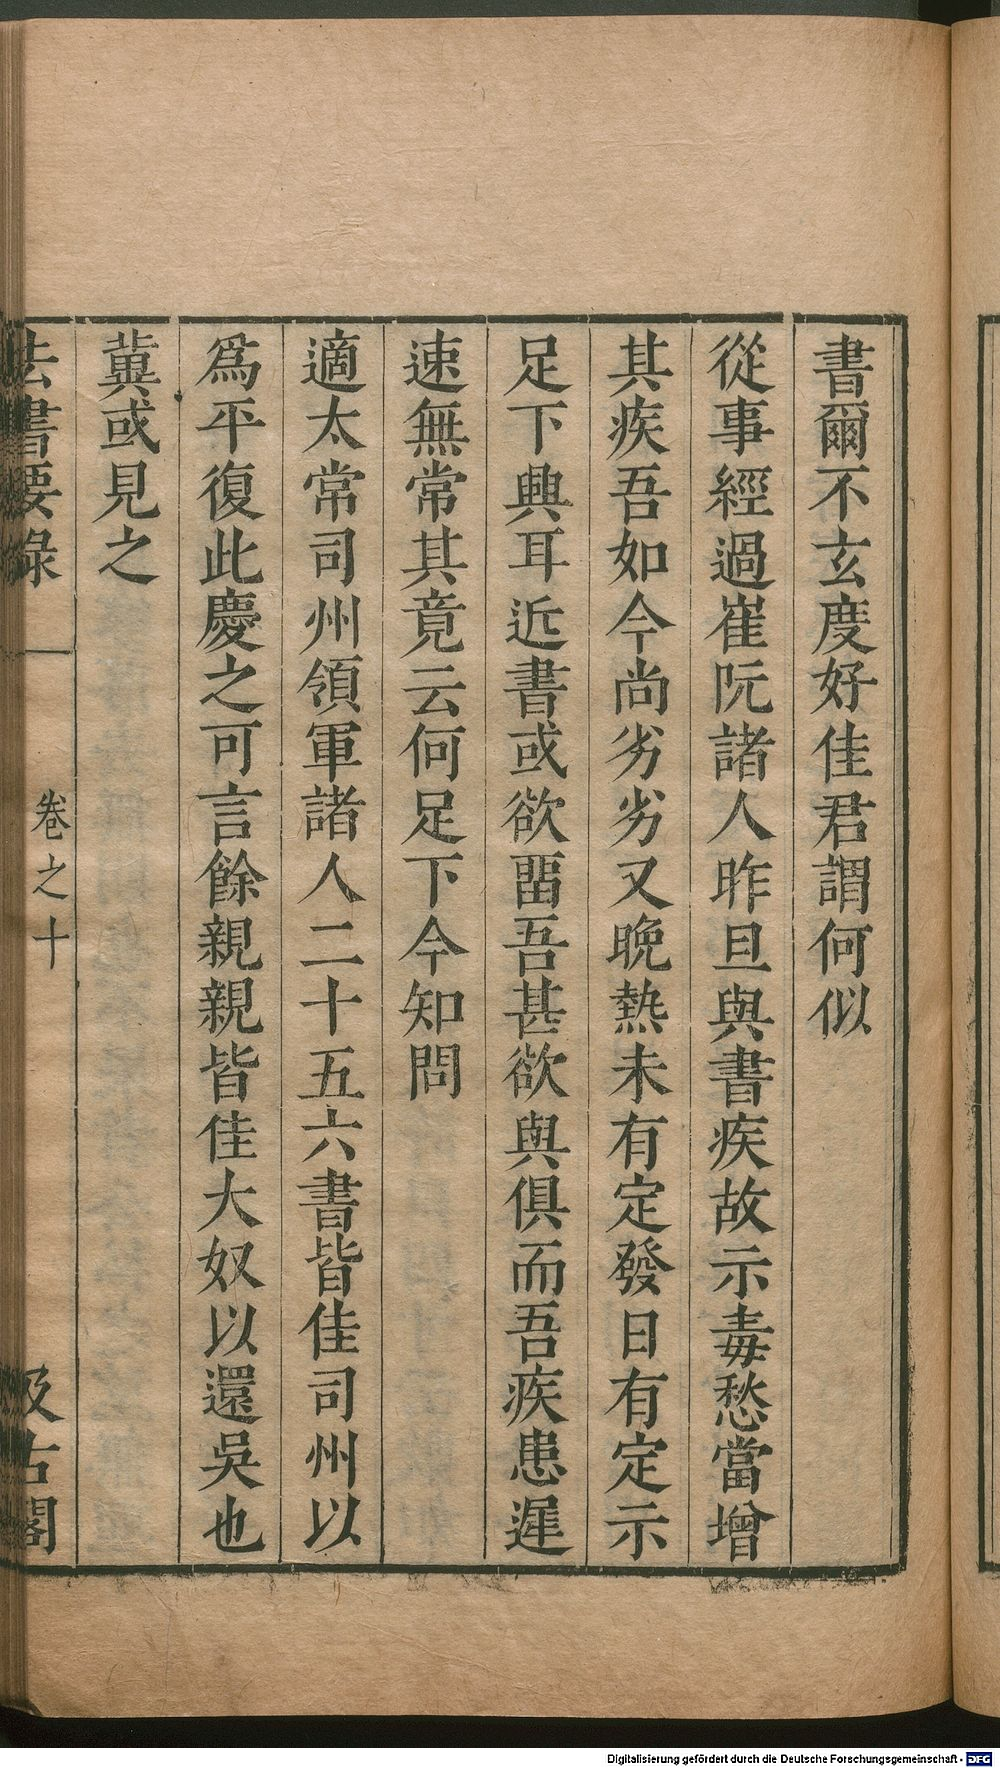 書爾不玄度好佳君謂何似
從事經過崔阮諸人昨旦與書疾故示毒愁當增
其疾吾如今尚劣劣又晚熱未有定發日有定示
足下興耳近書或欲畱吾甚欲與俱而吾疾患遲
速無常其竟云何足下今知問
適太常司州領軍諸人二十五六書皆佳司州以
爲平復此慶之可言餘親親皆佳大奴以還吳也
冀或見之
法書要錄 卷之十 汲古閣
Digitalisierung gefördert durch die Deutsche Forschungsgemeinschaft - DFG